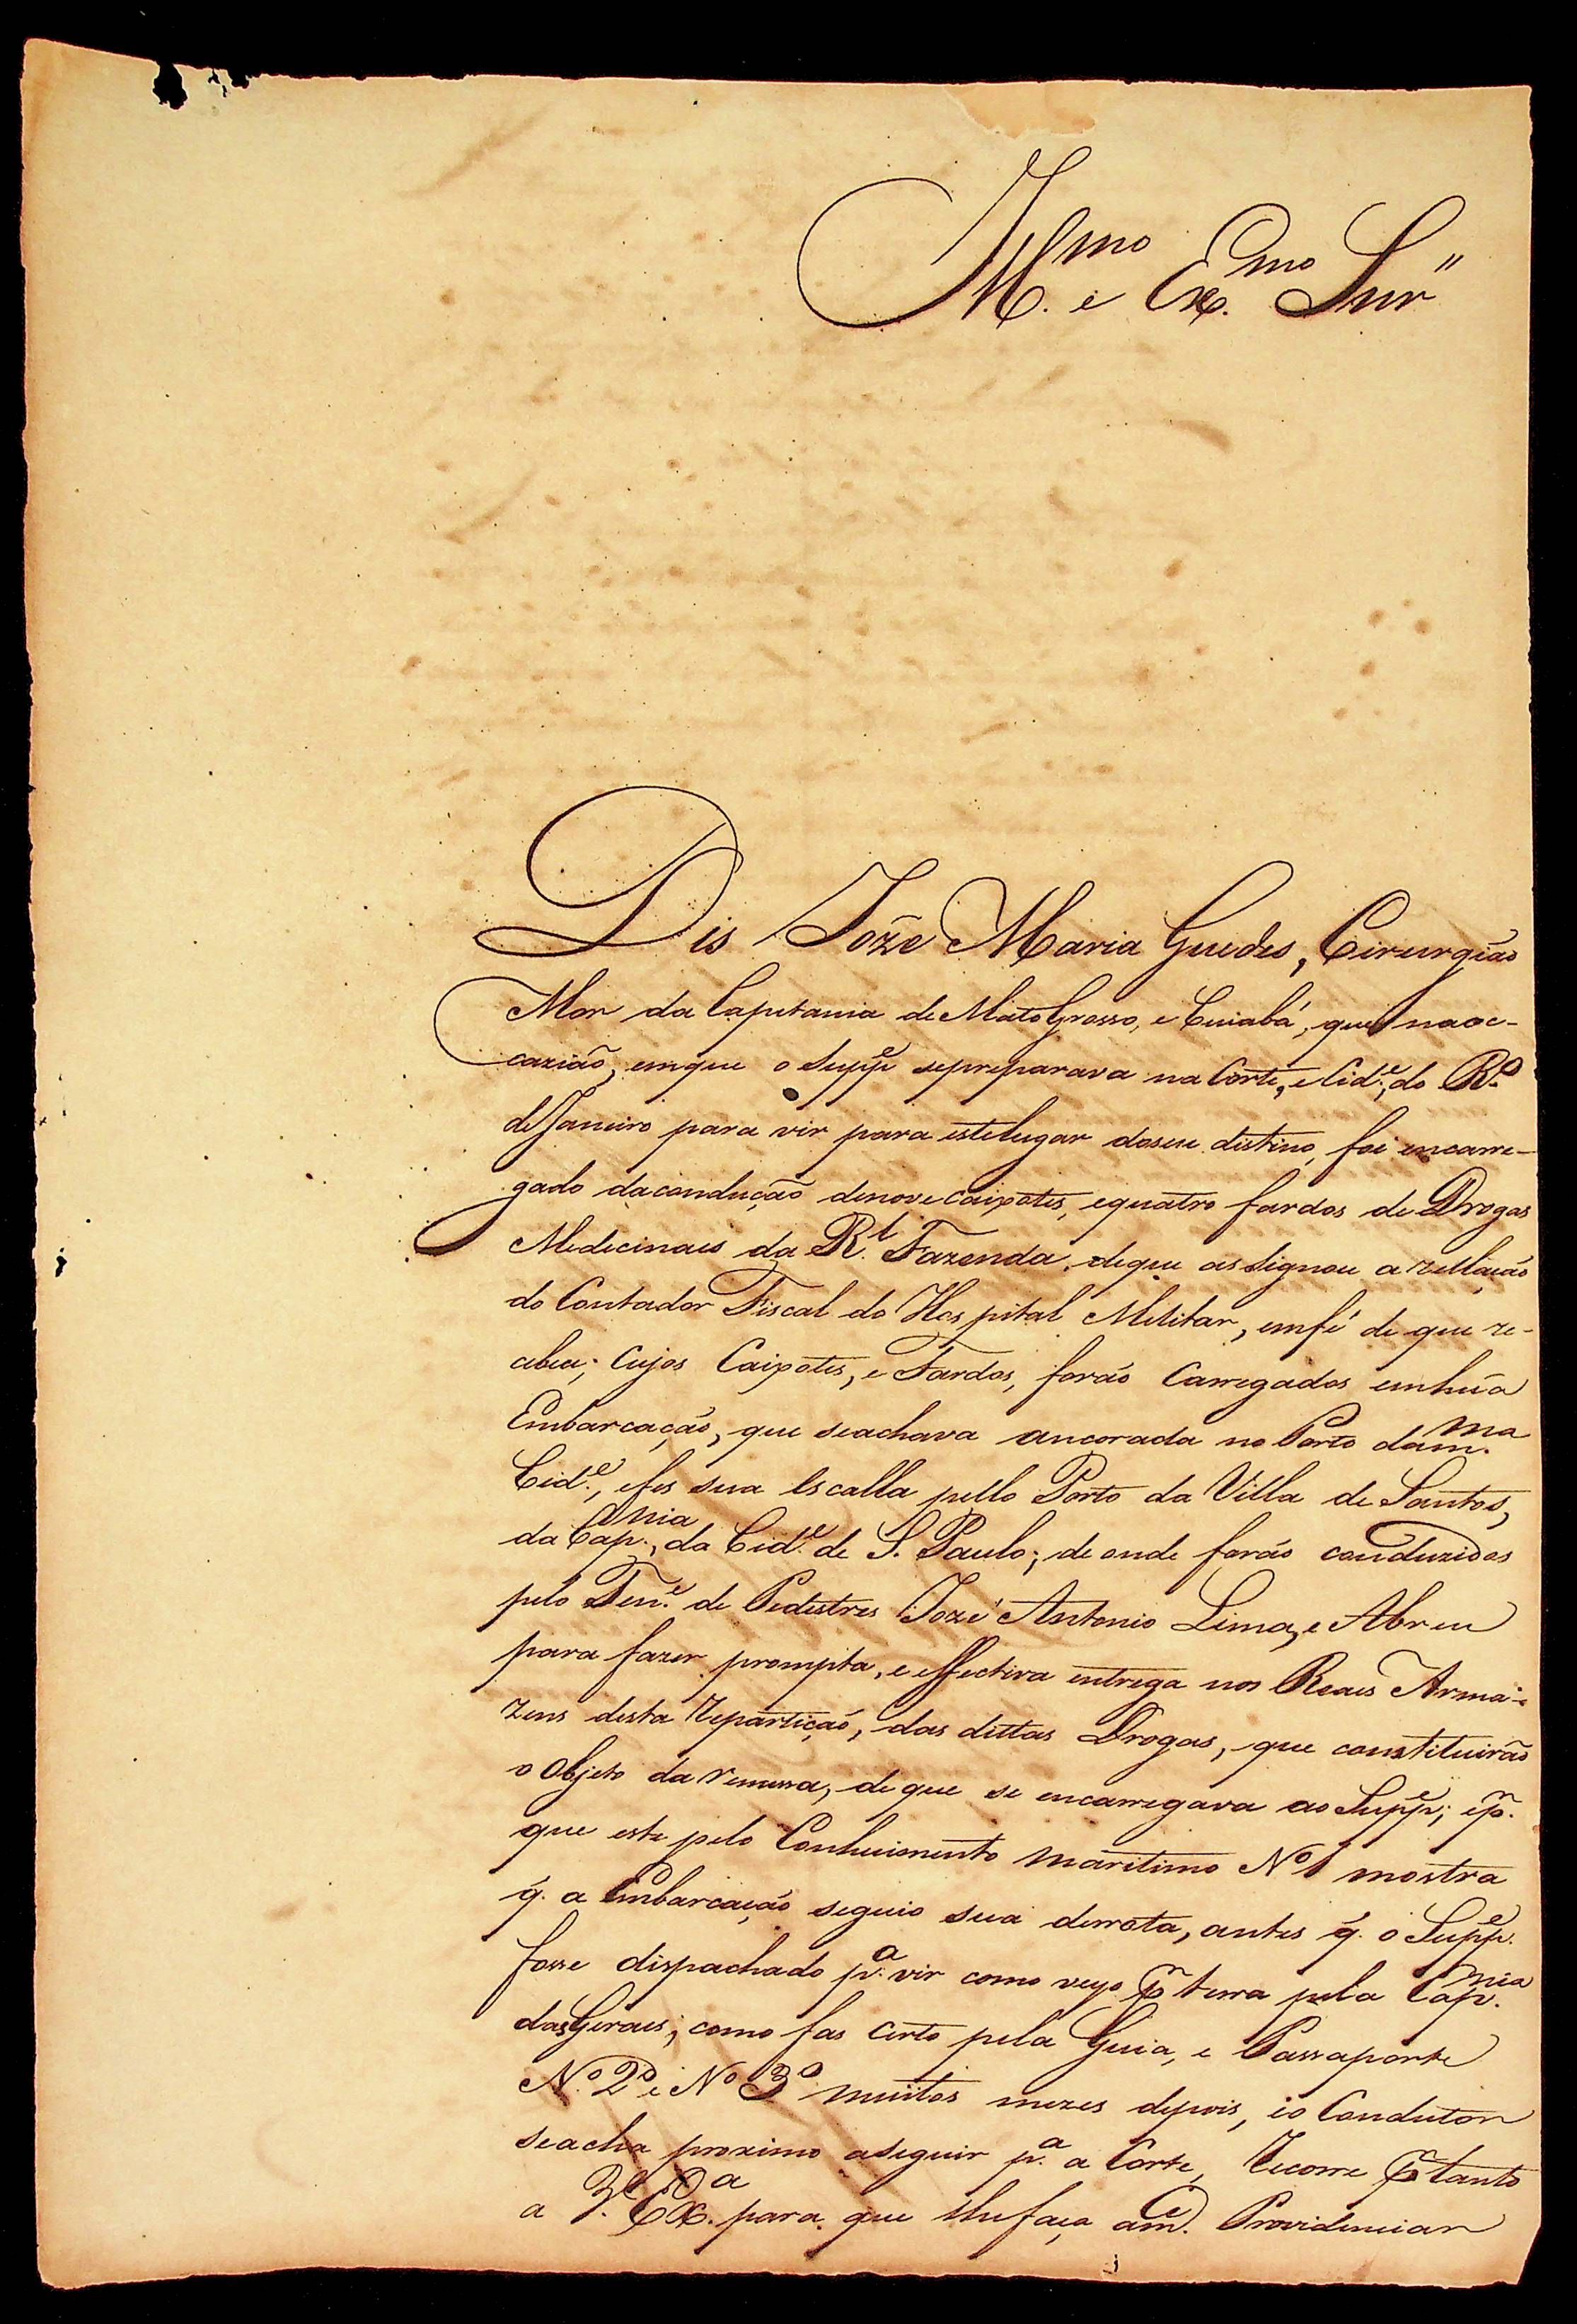 Ill.mo e Ex.mo Snr"
Dis Joze Maria Guedes, Cirurgião
Mor da Capitania de MatoGrosso, e Cuiabá, que naoc-
cazião, emque o Supp.e sepreparava na Corte, e Cid.e do R.o
deJaneiro para vir para estelugar doseu distino, foi encarre-
gado dacondução denove caixotes, equatro fardos de Drogas
Medecinaes da R.l Fazenda, deque assignou a rellação
do Contador Fiscal do Hospital Militar, emfé de que re-
cebeu; Cujos Caixotes, e Fardos, forão Carregados emhũa
Embarcação, que seachava ancorada no Porto dam.ma
Cid.e, efes sua escalla pello Porto da Villa de Santos,
da Cap.nia da Cid.e de S. Paulo; de onde forão conduzidos
pelo Ten.e de Pedestres Jozé Antonio Lima, e Abreu
para fazer prompta, e effectiva entrega nos Reaes Arma-
zens desta repartição, das dittas Drogas, que constituirão
o Objeto da remessa, de que se encarregava ao Supp.e; ep.r
que este pelo Conhecimento maritimo No 1 mostra
q. a Embarcação seguio sua derrota, antes q. o Supp.e
fosse dispachado p.a vir como veyo p.r terra pela Cap.nia
dasGeraes, como fas certo pela Guia, e Passaporte
No. 2o e No 3o muitos mezes depois, eo Condutor
seacha proximo aseguir p.a a Corte, recorre p.r tanto
a V. Ex.a para que lhefaça a m.ce Providenciar